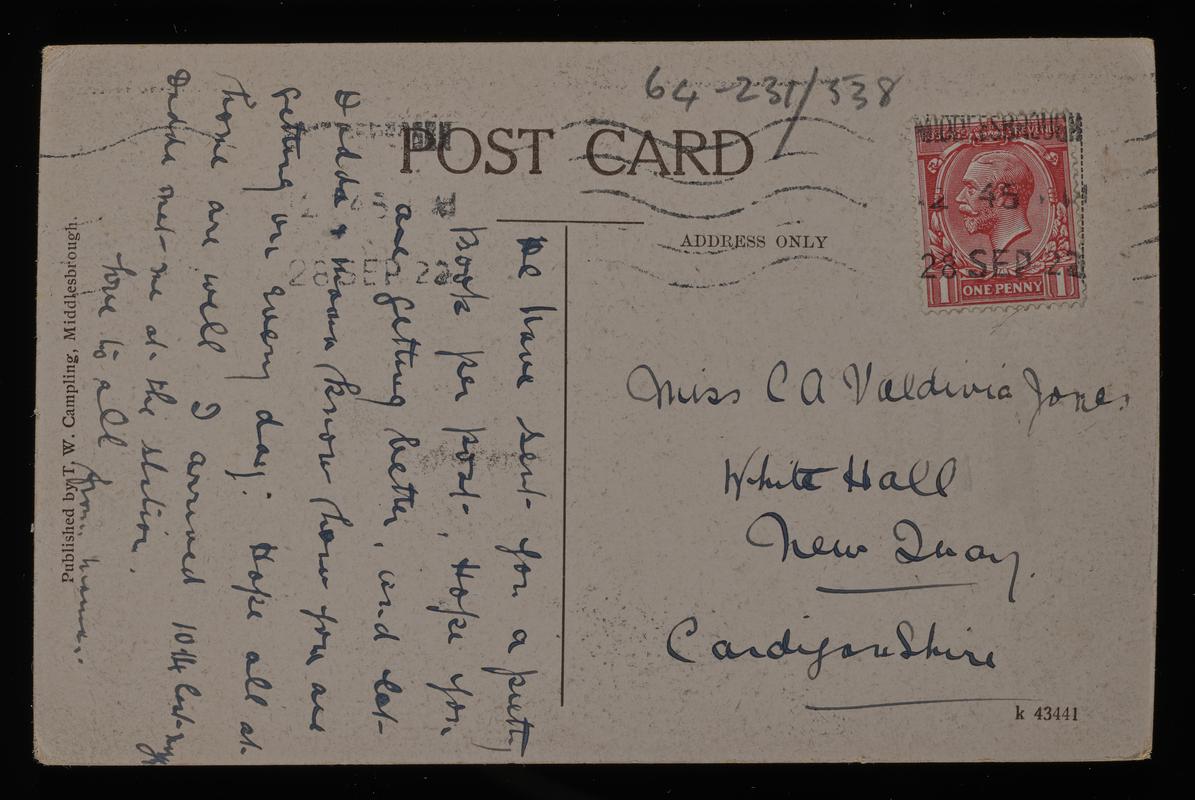 64-231/338
POST CARD
ADDRESS ONLY
MIDDLESBROUGH
45
28 SEP 22
ONE PENNY
1 1
Miss C A Valdivia Jones
White Hall
New Quay
Cardiganshire
k 43441
We have sent you a pretty
book per post, Hope you
are getting better, and let
Dadda & mama know how you are
getting on every day. Hope all at
home are well I arrived 10.14 last night
Dadda met me at the station.
Love to all from mama.
Published by T. W. Campling, Middlesbrough.